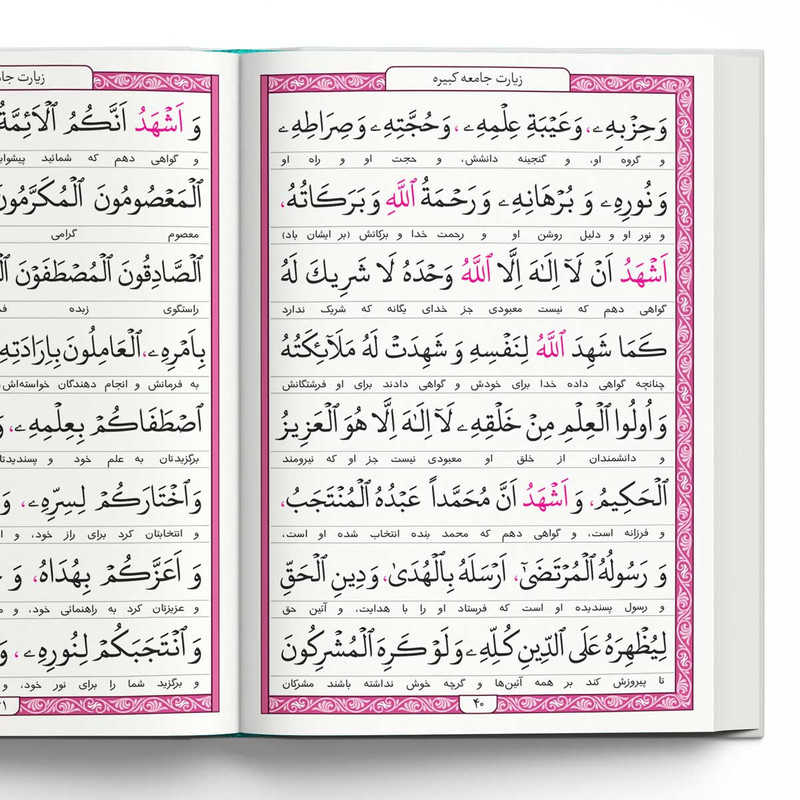 زیارت جامعه کبیره
وَحِزْبِهِ، وَعَيْبَةِ عِلْمِهِ، وَحُجَّتِهِ وَصِرَاطِهِ
و گروه او، و گنجینه دانشش، و حجت او و راه او
وَ نُورِهِ وَ بُرْهَانِهِ وَ رَحْمَةُ اللَّهِ وَ بَرَكَاتُهُ،
و نور او و دلیل روشن او و رحمت خدا و برکاتش (بر ایشان باد)
اَشْهَدُ اَنْ لَآ اِلٰهَ اِلَّا اللَّهُ وَحْدَهُ لَا شَرِيكَ لَهُ
گواهی دهم که نیست معبودی جز خدای یگانه که شریک ندارد
كَمَا شَهِدَ اللَّهُ لِنَفْسِهِ وَ شَهِدَتْ لَهُ مَلَآئِكَتُهُ
چنانچه گواهی داده خدا برای خودش و گواهی دادند برای او فرشتگانش
وَ اُولُوا الْعِلْمِ مِنْ خَلْقِهِ لَآ اِلٰهَ اِلَّا هُوَ الْعَزِيزُ
و دانشمندان از خلق او معبودی نیست جز او که نیرومند
الْحَكِيمُ، وَ اَشْهَدُ اَنَّ مُحَمَّداً عَبْدُهُ الْمُنْتَجَبُ،
و فرزانه است، و گواهی دهم که محمد بنده انتخاب شده او است،
وَ رَسُولُهُ الْمُرْتَضَىٰ، اَرْسَلَهُ بِالْهُدَىٰ، وَ دِينِ الْحَقِّ
و رسول پسندیده او است که فرستاد او را با هدایت، و آئین حق
لِيُظْهِرَهُ عَلَى الدِّينِ كُلِّهِ وَ لَوْ كَرِهَ الْمُشْرِكُونَ
تا پیروزش کند بر همه آئین‌ها و گرچه خوش نداشته باشند مشرکان
۴۰
زیارت
وَ اَشْهَدُ اَنَّكُمُ الْاَئِمَّةُ
و گواهی دهم که شمائید
الْمَعْصُومُونَ الْمُكَرَّمُونَ
معصوم گرامی
الصَّادِقُونَ الْمُصْطَفَوْنَ
راستگوی زبده
بِاَمْرِهِ، الْعَامِلُونَ بِاِرَادَتِهِ
به فرمانش و انجام دهندگان خواسته‌اش،
اصْطَفَاكُمْ بِعِلْمِهِ،
برگزیدتان به علم خود و
وَ اخْتَارَكُمْ لِسِرِّهِ، وَ
و انتخابتان کرد برای راز خود، و
وَ اَعَزَّكُمْ بِهُدَاهُ، وَ
و عزیزتان کرد به راهنمائی خود، و
وَ انْتَجَبَكُمْ لِنُورِهِ،
و برگزید شما را برای نور خود، و